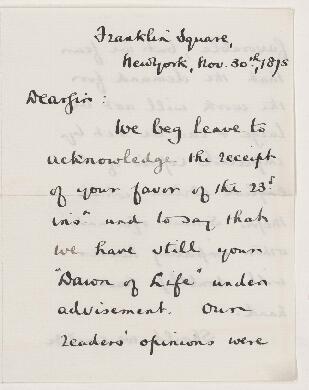 Franklin Square,
New York, Nov. 30th, 1875
Dear Sir:
We beg leave to
acknowledge the receipt
of your favor of the 23d
inst and to say that
we have still your
"Dawn of Life" under
advisement. Our
readers' opinions were